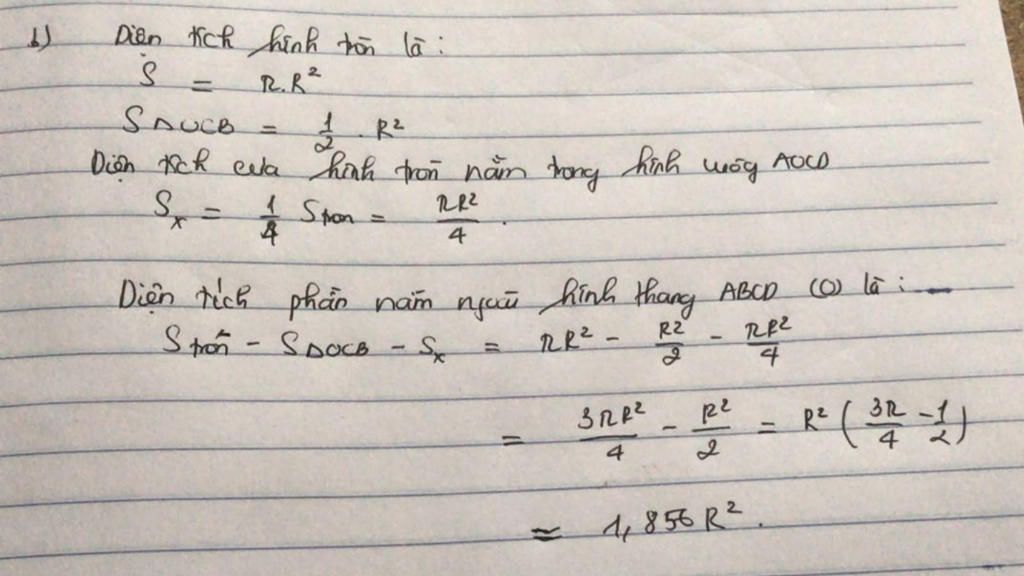 b) Diện tích hình tròn là :
S = π.R²
SΔOCB = 1/2 . R²
Diện tích của hình tròn nằm trong hình vuông AOCD
Sₓ = 1/4 Stròn = πR²/4 .
Diện tích phần nằm ngoài hình thang ABCD (O) là :
Stròn - SΔOCB - Sₓ = πR² - R²/2 - πR²/4
= 3πR²/4 - R²/2 = R² ( 3π/4 - 1/2 )
≈ 1,856 R² .